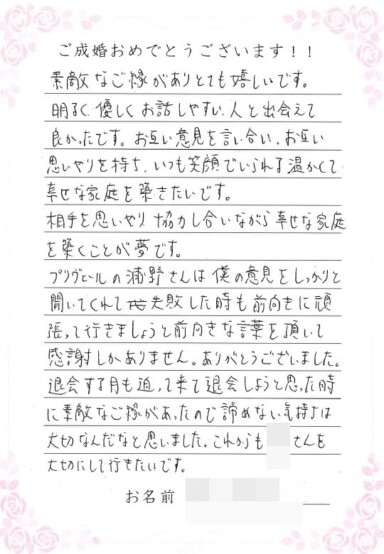 ご成婚おめでとうございます！！
素敵なご縁がありとても嬉しいです。
明るく、優しくお話しやすい人と出会えて
良かったです。お互い意見を言い合い、お互い
思いやりを持ち、いつも笑顔でいられる温かくて
幸せな家庭を築きたいです。
相手を思いやり協力し合いながら幸せな家庭
を築くことが夢です。
ブリヴェールの浦野さんは僕の意見をしっかりと
聞いてくれて失敗した時も前向きに頑
張って行きましょうと前向きな言葉を頂いて
感謝しかありません。ありがとうございました。
退会する月も迫って来て退会しようと思った時
に素敵なご縁があったので諦めない気持ちは
大切なんだなと思いました。これからも さんを
大切にして行きたいです。
お名前